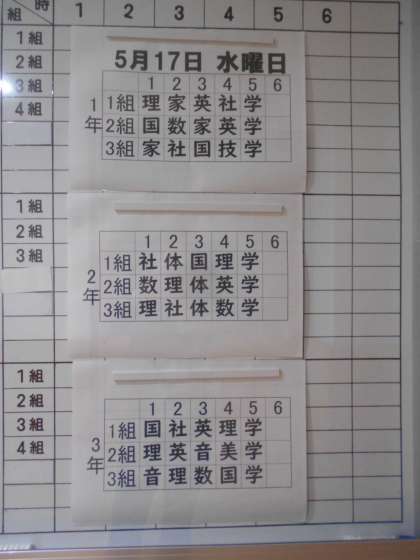 時 1 2 3 4 5 6
組
1組
2組
3組
4組
5月17日 水曜日
1 2 3 4 5 6
1年
1組 理 家 英 社 学
2組 国 数 家 英 学
3組 家 社 国 技 学
1組
2組
3組
1 2 3 4 5 6
2年
1組 社 体 国 理 学
2組 数 理 体 英 学
3組 理 社 体 数 学
1組
2組
3組
4組
1 2 3 4 5 6
3年
1組 国 社 英 理 学
2組 理 英 音 美 学
3組 音 理 数 国 学